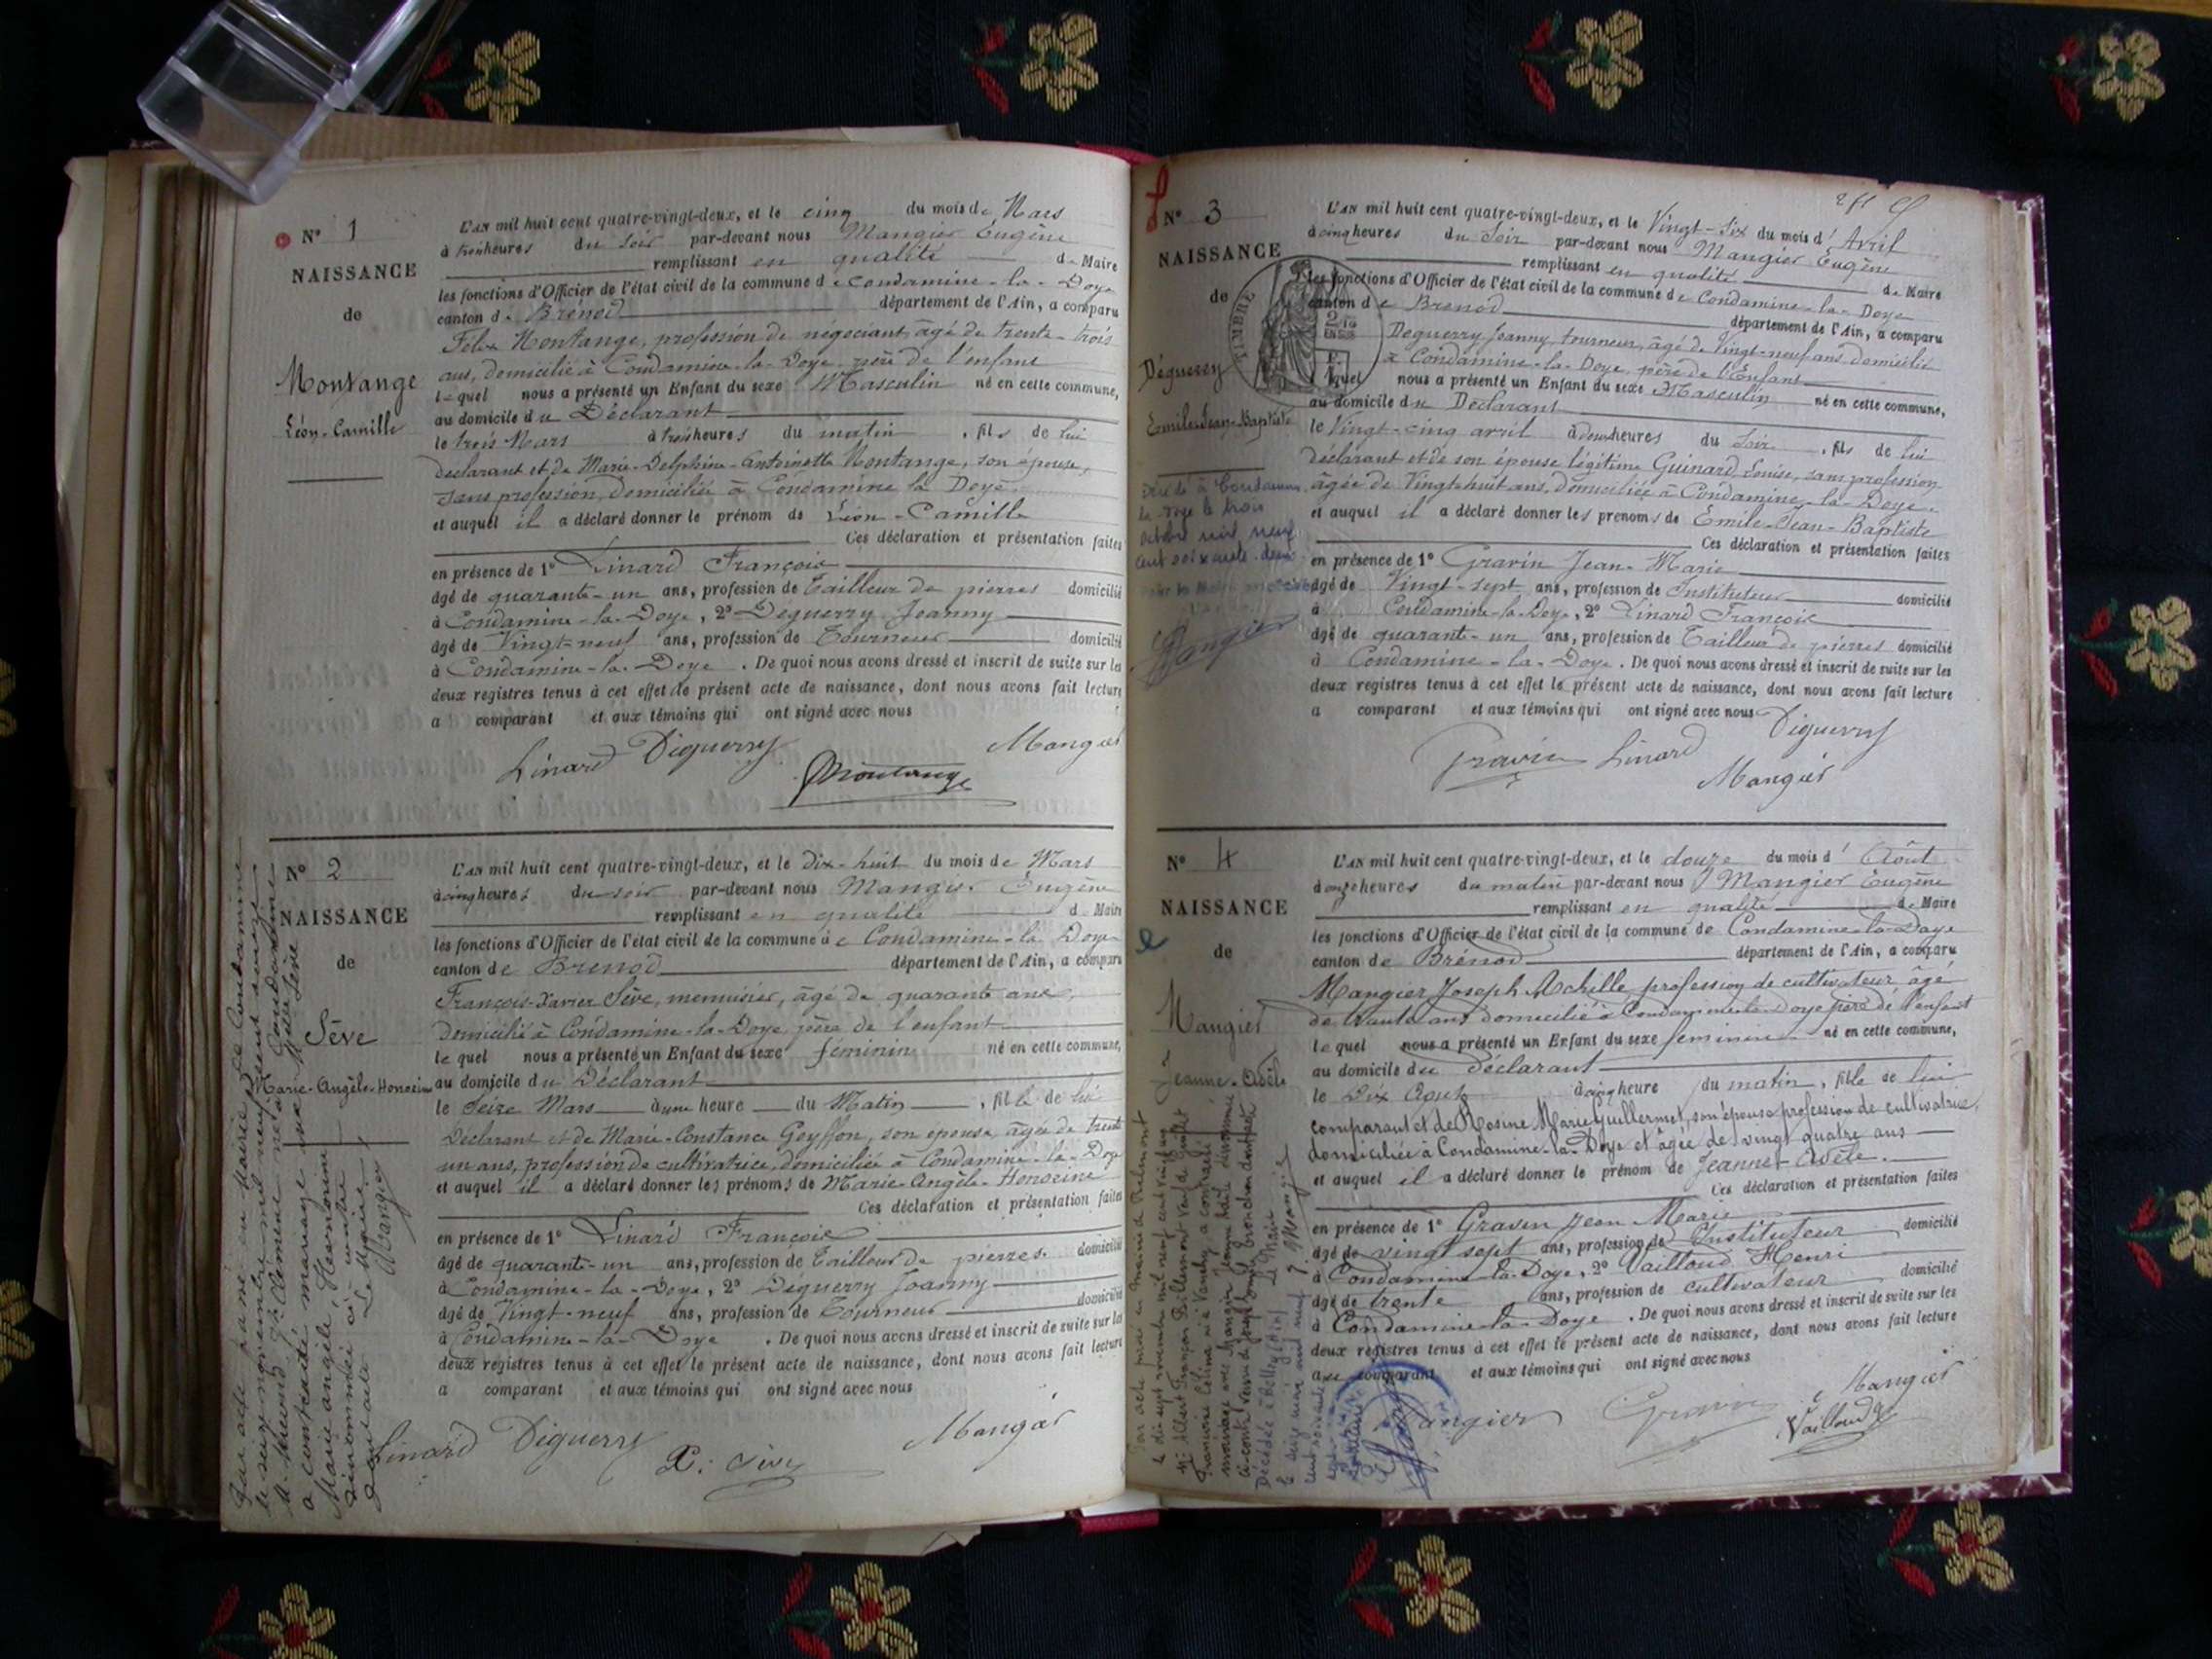 N° 1
NAISSANCE
de
Montange
Léon-Camille
L'AN mil huit cent quatre-vingt-deux, et le cinq du mois de Mars
à trois heures du soir par-devant nous Mangier Eugène
remplissant en qualité de Maire
les fonctions d'Officier de l'état civil de la commune de Condamine-la-Doye
canton de Brénod département de l'Ain, a comparu
Félix Montange, profession de négociant, âgé de trente-trois
ans, domicilié à Condamine-la-Doye, père de l'enfant
lequel nous a présenté un Enfant du sexe Masculin né en cette commune,
au domicile du Déclarant
le trois Mars à trois heures du matin, fils de lui
déclarant et de Marie-Delphine-Antoinette Montange, son épouse,
sans profession, domiciliée à Condamine la Doye
et auquel il a déclaré donner le prénom de Léon-Camille
Ces déclaration et présentation faites
en présence de 1° Linard François
âgé de quarante-un ans, profession de Tailleur de pierres domicilié
à Condamine-la-Doye, 2° Deguerry Joanny
âgé de Vingt-neuf ans, profession de Tourneur domicilié
à Condamine-la-Doye. De quoi nous avons dressé et inscrit de suite sur les
deux registres tenus à cet effet le présent acte de naissance, dont nous avons fait lecture
a comparant et aux témoins qui ont signé avec nous
Linard Diguerry Montange Mangier
N° 2
NAISSANCE
de
Sève
Marie-Angèle-Honorine
L'AN mil huit cent quatre-vingt-deux, et le dix-huit du mois de Mars
à cinq heures du soir par-devant nous Mangier Eugène
remplissant en qualité de Maire
les fonctions d'Officier de l'état civil de la commune de Condamine-la Doye
canton de Brenod département de l'Ain, a comparu
François-Xavier Sève, menuisier, âgé de quarante ans,
domicilié à Condamine-la-Doye, père de l'enfant
lequel nous a présenté un Enfant du sexe féminin né en cette commune,
au domicile du Déclarant
le Seize Mars à une heure du Matin, fille de lui
Déclarant et de Marie-Constance Goyffon, son épouse, âgée de trente
un ans, profession de cultivatrice, domiciliée à Condamine-la-Doye
et auquel il a déclaré donner les prénoms de Marie-Angèle-Honorine
Ces déclaration et présentation faites
en présence de 1° Linard François
âgé de quarante-un ans, profession de Tailleur de pierres domicilié
à Condamine-la-Doye, 2° Déguerry Joanny
âgé de Vingt-neuf ans, profession de Tourneur domicilié
à Condamine-la-Doye. De quoi nous avons dressé et inscrit de suite sur les
deux registres tenus à cet effet le présent acte de naissance, dont nous avons fait lecture
a comparant et aux témoins qui ont signé avec nous
Linard Diguerry X. Sève Mangier
Par acte passé en Mairie de Condamine
le seize novembre mil neuf cent
a contracté mariage avec Melle Sève
Marie angèle, Honorine
dénommée ci-contre
Le Maire
Mangier
N° 3
NAISSANCE
de
TIMBRE
Déguerry
Emile-Jean-Baptiste
L'AN mil huit cent quatre-vingt-deux, et le Vingt-Six du mois d'Avril
à cinq heures du Soir par-devant nous Mangier Eugène
remplissant en qualité de Maire
les fonctions d'Officier de l'état civil de la commune de Condamine-la-Doye
canton de Brenod département de l'Ain, a comparu
Deguerry Joanny tourneur, âgé de Vingt-neuf ans domicilié
à Condamine-la-Doye, père de l'Enfant
lequel nous a présenté un Enfant du sexe Masculin né en cette commune,
au domicile du Déclarant
le Vingt-cinq avril à deux heures du Soir, fils de lui
déclarant et de son épouse légitime Guinard Louise, sans profession
âgée de Vingt-huit ans, domiciliée à Condamine-la-Doye.
et auquel il a déclaré donner les prénoms de Emile-Jean-Baptiste
Ces déclaration et présentation faites
en présence de 1° Gravin Jean-Marie
âgé de Vingt-sept ans, profession de Instituteur domicilié
à Condamine-la-Doye, 2° Linard François
âgé de quarante-un ans, profession de Tailleur de pierres domicilié
à Condamine-la-Doye. De quoi nous avons dressé et inscrit de suite sur les
deux registres tenus à cet effet le présent acte de naissance, dont nous avons fait lecture
a comparant et aux témoins qui ont signé avec nous
Gravin Linard Diguerry
Mangier
Décédé à Condamine
la Doye le trois
octobre mil neuf
cent soixante-deux
Mangier
N° 4
NAISSANCE
de
Mangier
Jeanne-Adèle
L'AN mil huit cent quatre-vingt-deux, et le douze du mois d'Août
à onze heures du matin par-devant nous Mangier Eugène
remplissant en qualité de Maire
les fonctions d'Officier de l'état civil de la commune de Condamine-la-Doye
canton de Brénod département de l'Ain, a comparu
Mangier Joseph Achille profession de cultivateur âgé
de trente ans domicilié à Condamine la Doye père de l'enfant
lequel nous a présenté un Enfant du sexe féminin né en cette commune,
au domicile du déclarant
le Dix Août à cinq heure du matin, fille de lui
comparant et de Rosine Marie Guillermet, son épouse profession de cultivatrice,
domiciliée à Condamine-la-Doye et âgée de vingt quatre ans
et auquel il a déclaré donner le prénom de Jeanne-Adèle.
Ces déclaration et présentation faites
en présence de 1° Gravin Jean Marie
âgé de vingt sept ans, profession de Instituteur domicilié
à Condamine-la-Doye, 2° Vailloud Henri
âgé de trente ans, profession de cultivateur domicilié
à Condamine-la-Doye. De quoi nous avons dressé et inscrit de suite sur les
deux registres tenus à cet effet le présent acte de naissance, dont nous avons fait lecture
au comparant et aux témoins qui ont signé avec nous
Mangier Gravin Mangier
Vailloud
Par acte passé en Mairie
mariage avec Mangier Jeanne Adèle dénommée
ci-contre
Le Maire
Décédée à Belley (Ain)
le seize mai mil neuf
cent soixante